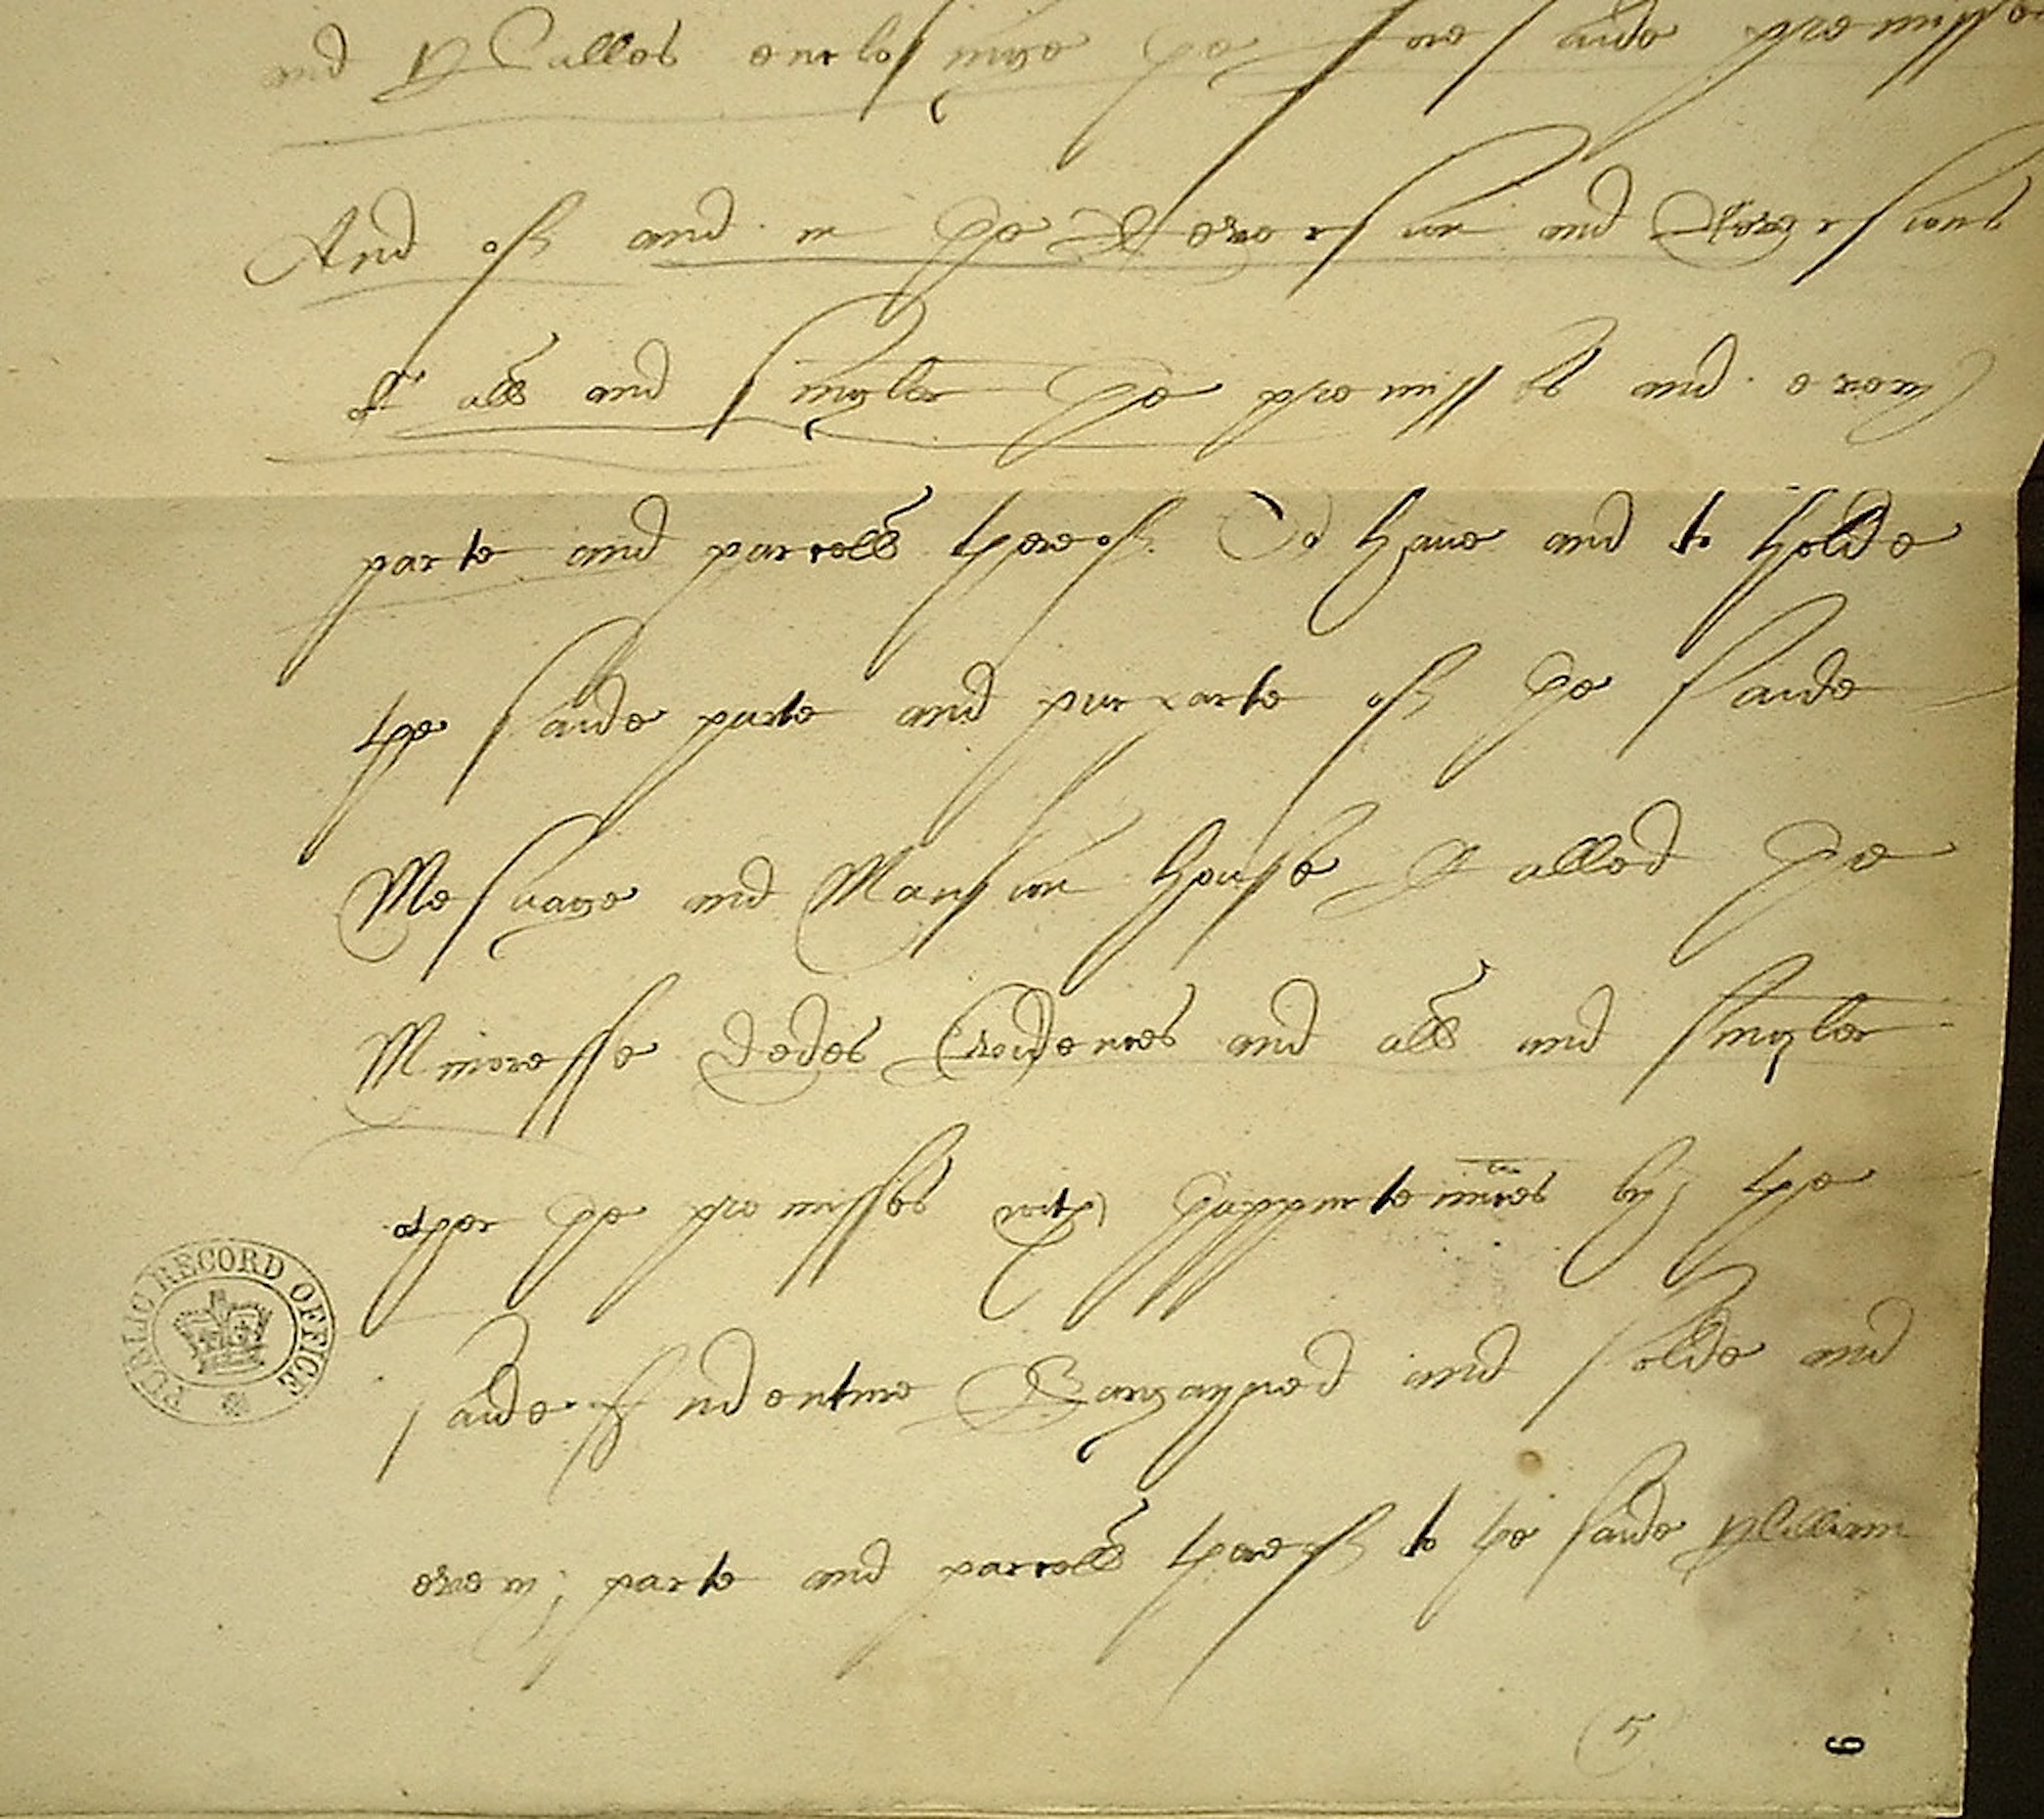 and Walles enclosinge the foresaide premisses
And of and in the Revercion and Revercions
of all and singler the premisses and every
parte and parcell thereof To haue and to holde
the saide parte and purparte of the saide
Mesuage and Mansion house Called the
Minoresse dedes Evidences and all and singler
other the premisses with thappurtenances by the
saide Indenture Bargayned and solde and
every parte and parcell thereof to the saide William
PUBLIC RECORD OFFICE
(5)
6